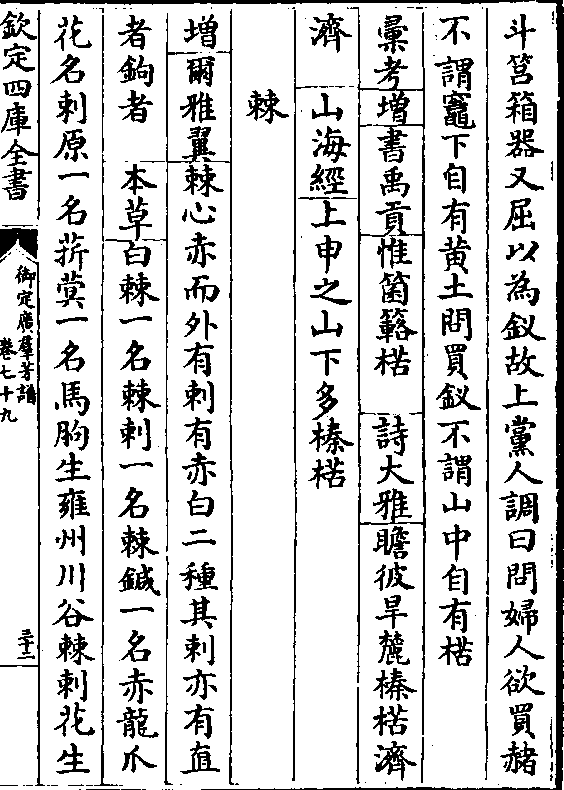 斗筥箱器又屈以為釵故上黨人調曰問婦人欲買赭
不謂竈下自有黄土問買釵不謂山中自有楛
彚考增書禹貢惟箘簵楛　詩大雅瞻彼旱麓榛楛濟
濟　山海經上申之山下多榛楛
棘
增爾雅翼棘心赤而外有刺有赤白二種其刺亦有直
者鉤者　本草白棘一名棘刺一名棘鍼一名赤龍爪
花名刺原一名菥蓂一名馬朐生雍州川谷棘刺花生
欽定四庫全書
御定廣羣芳譜
卷七十九
三十二